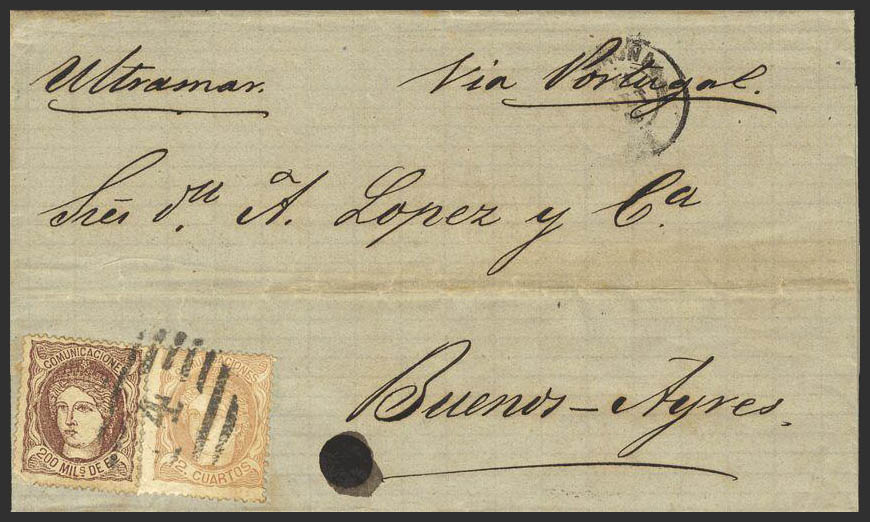 Ultramar. Via Portugal.
A. Lopez y Cª
Buenos-Ayres.
COMUNICACIONES
200 MILS DE
4
CUARTOS